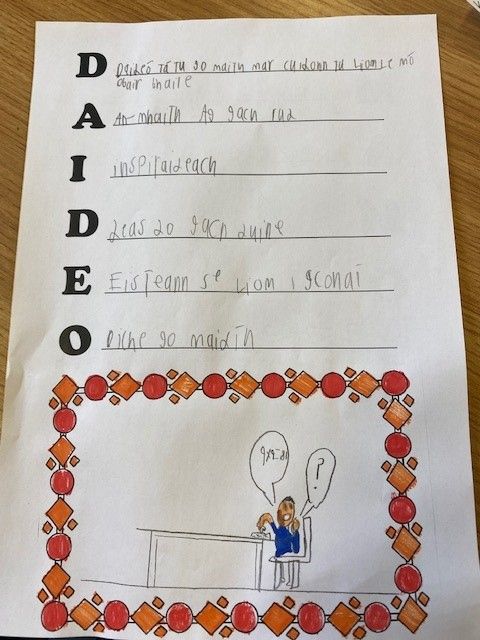 D Daideó Tá Tu go maith mar cuidonn tu liom le mó
obair bhaile
A An-mhaith Ag gach rud
I inspiraideach
D deas do gach duine
E Eisteann sé liom i gconaí
O Oiche go maidin
?